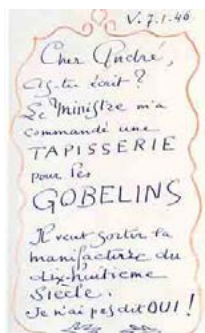 V. 7.1.46
Cher André,
as-tu écrit ?
Le Ministre m'a
commandé une
TAPISSERIE
pour les
GOBELINS
Il veut sortir la
manufacture du
dix-huitieme
Siècle.
Je n'ai pas dit OUI !